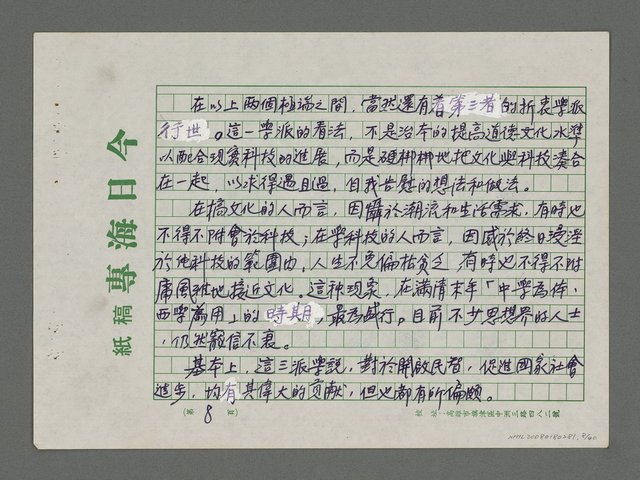 在以上兩個極端之間，當然還有着第三者的折衷學派
行世。這一學派的看法，不是治本的提高道德文化水準
以配合現實科技的進展，而是硬梆梆地把文化與科技湊合
在一起，以求得過且過，自我告慰的想法和做法。
在搞文化的人而言，因懾於潮流和生活需求，有時也
不得不附會於科技；在學科技的人而言，因感於終日浸淫
於純科技的範圍內，人生不免偏枯貧乏，有時也不得不附
庸風雅地接近文化。這种現象，在滿清末年「中學為体，
西學為用」的時期，最為盛行。目前不少思想界的人士
，仍然篤信不衰。
基本上，這三派學說，對於開啟民智，促進國家社會
進步，均有其偉大的貢獻，但也都有所偏頗。
今日海專
稿紙
（第8頁）
校址：高雄市旗津區中洲三路四八二號
NMTL20080180281, 8/60